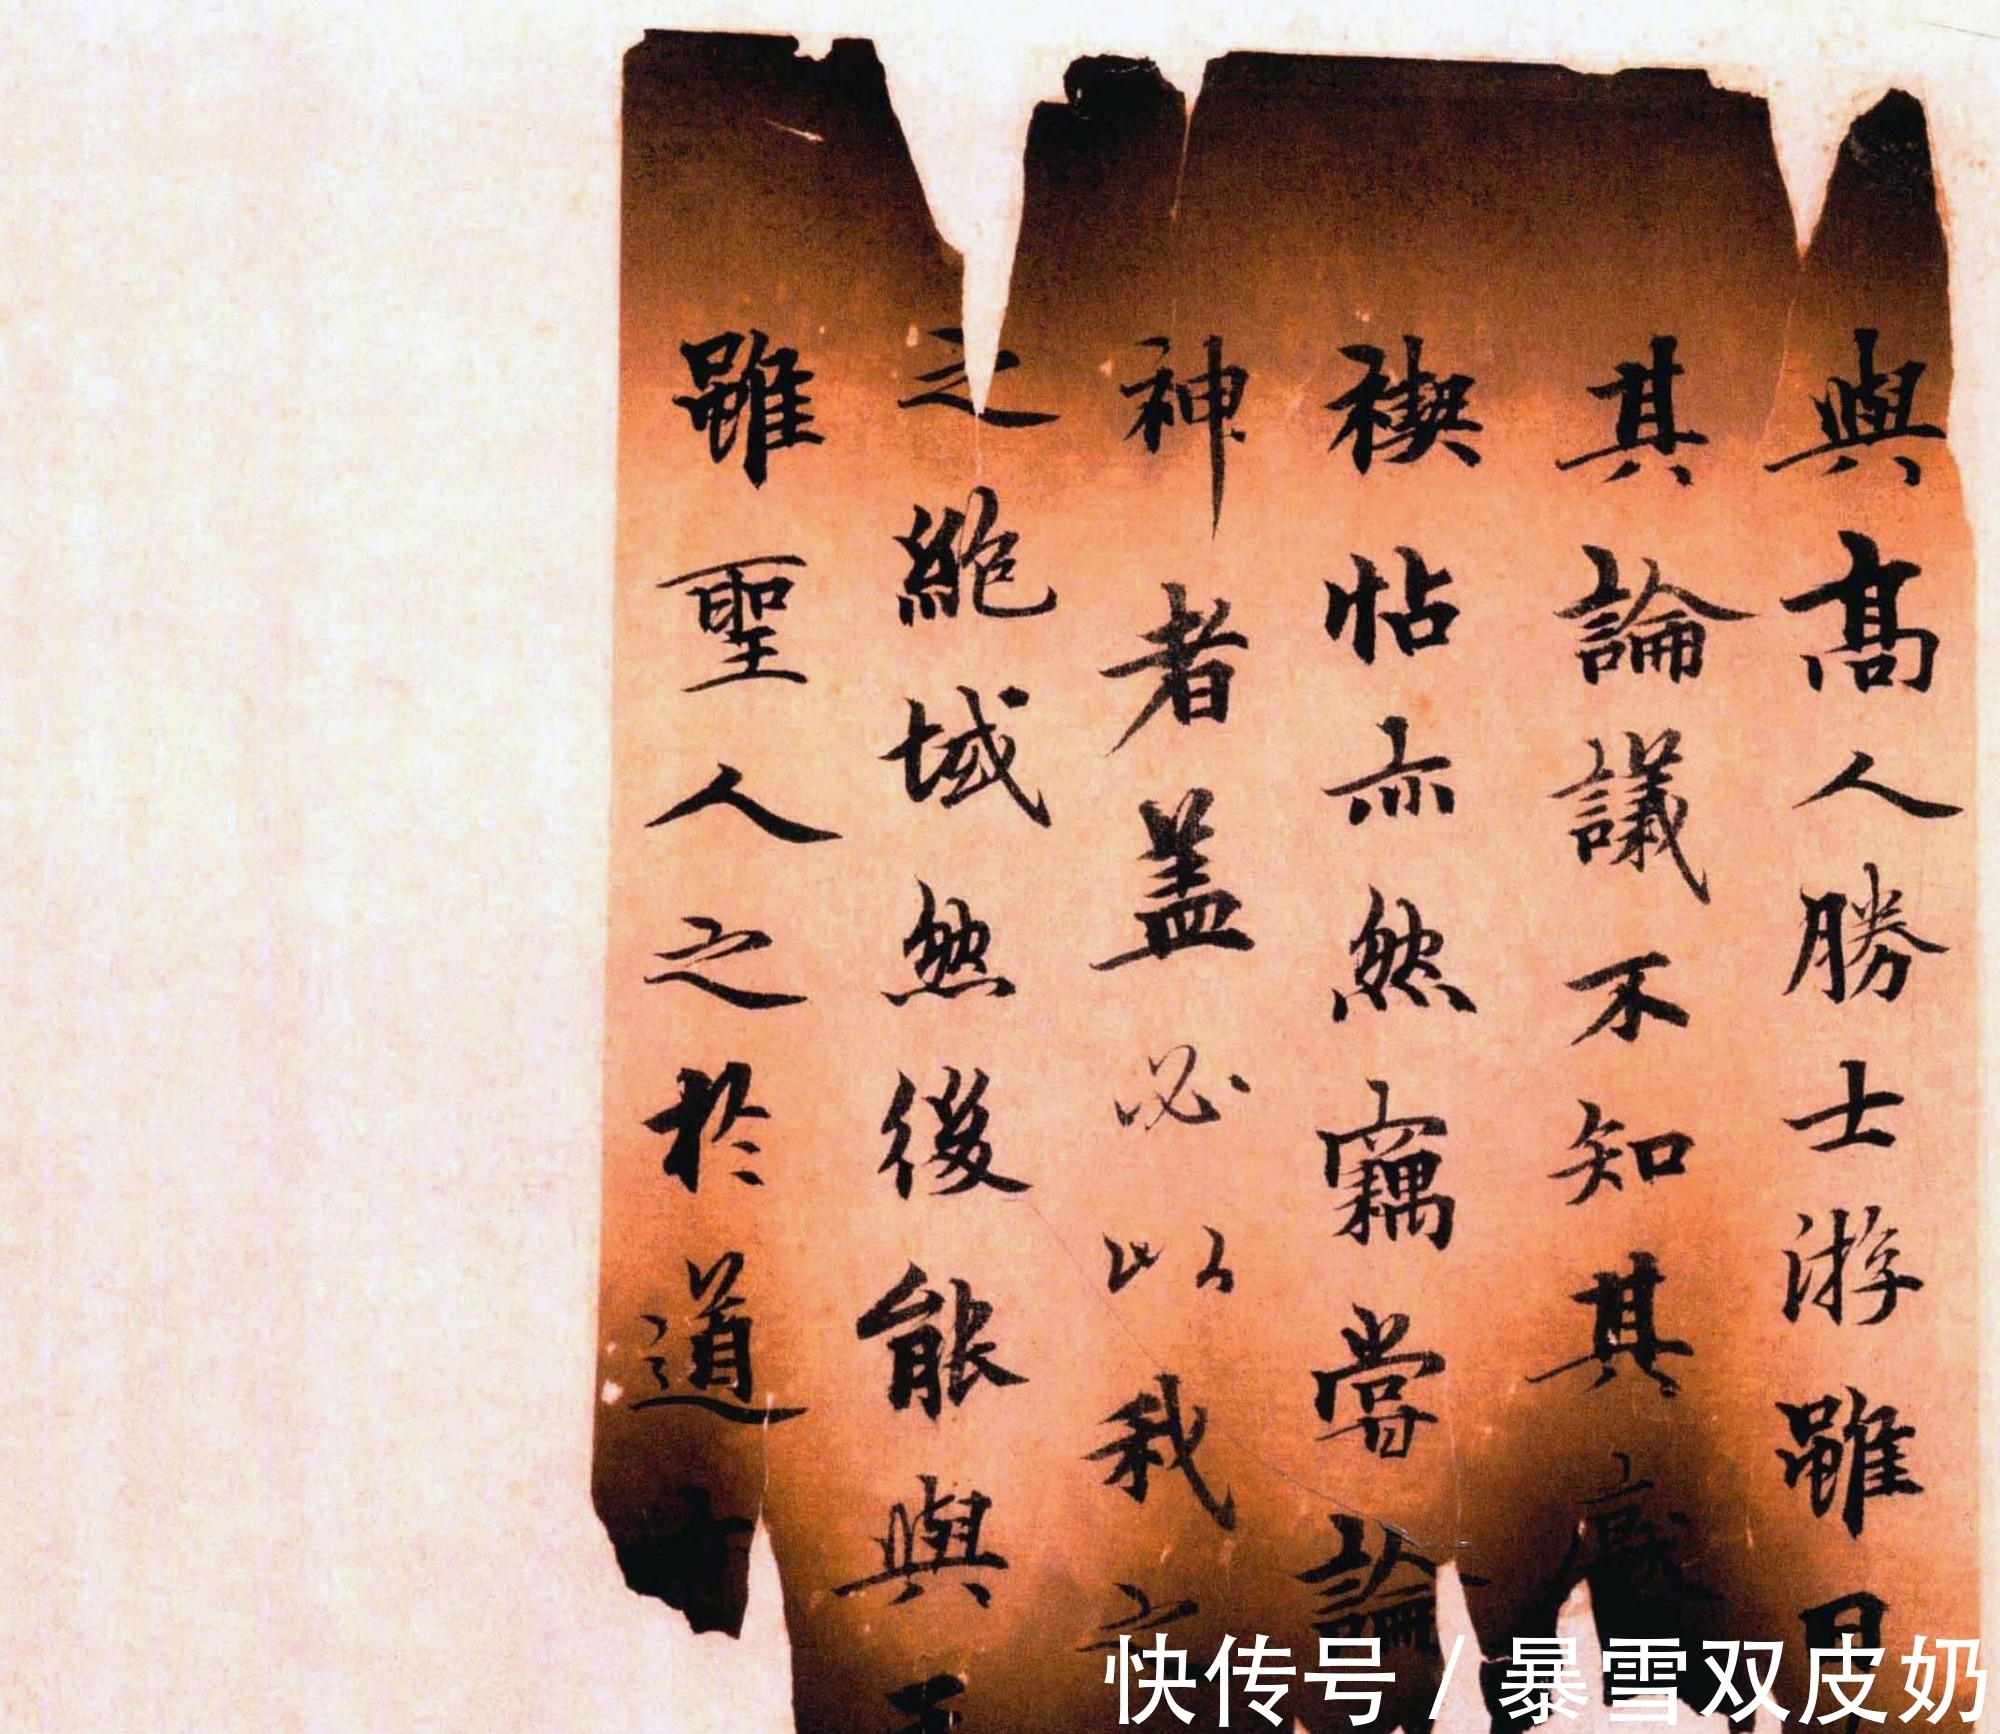 與高人勝士游雖日
其論議不知其厭
禊帖亦然竊嘗論
神者蓋必以我之
之絶域然後能與
雖聖人之於道
快传号/暴雪双皮奶